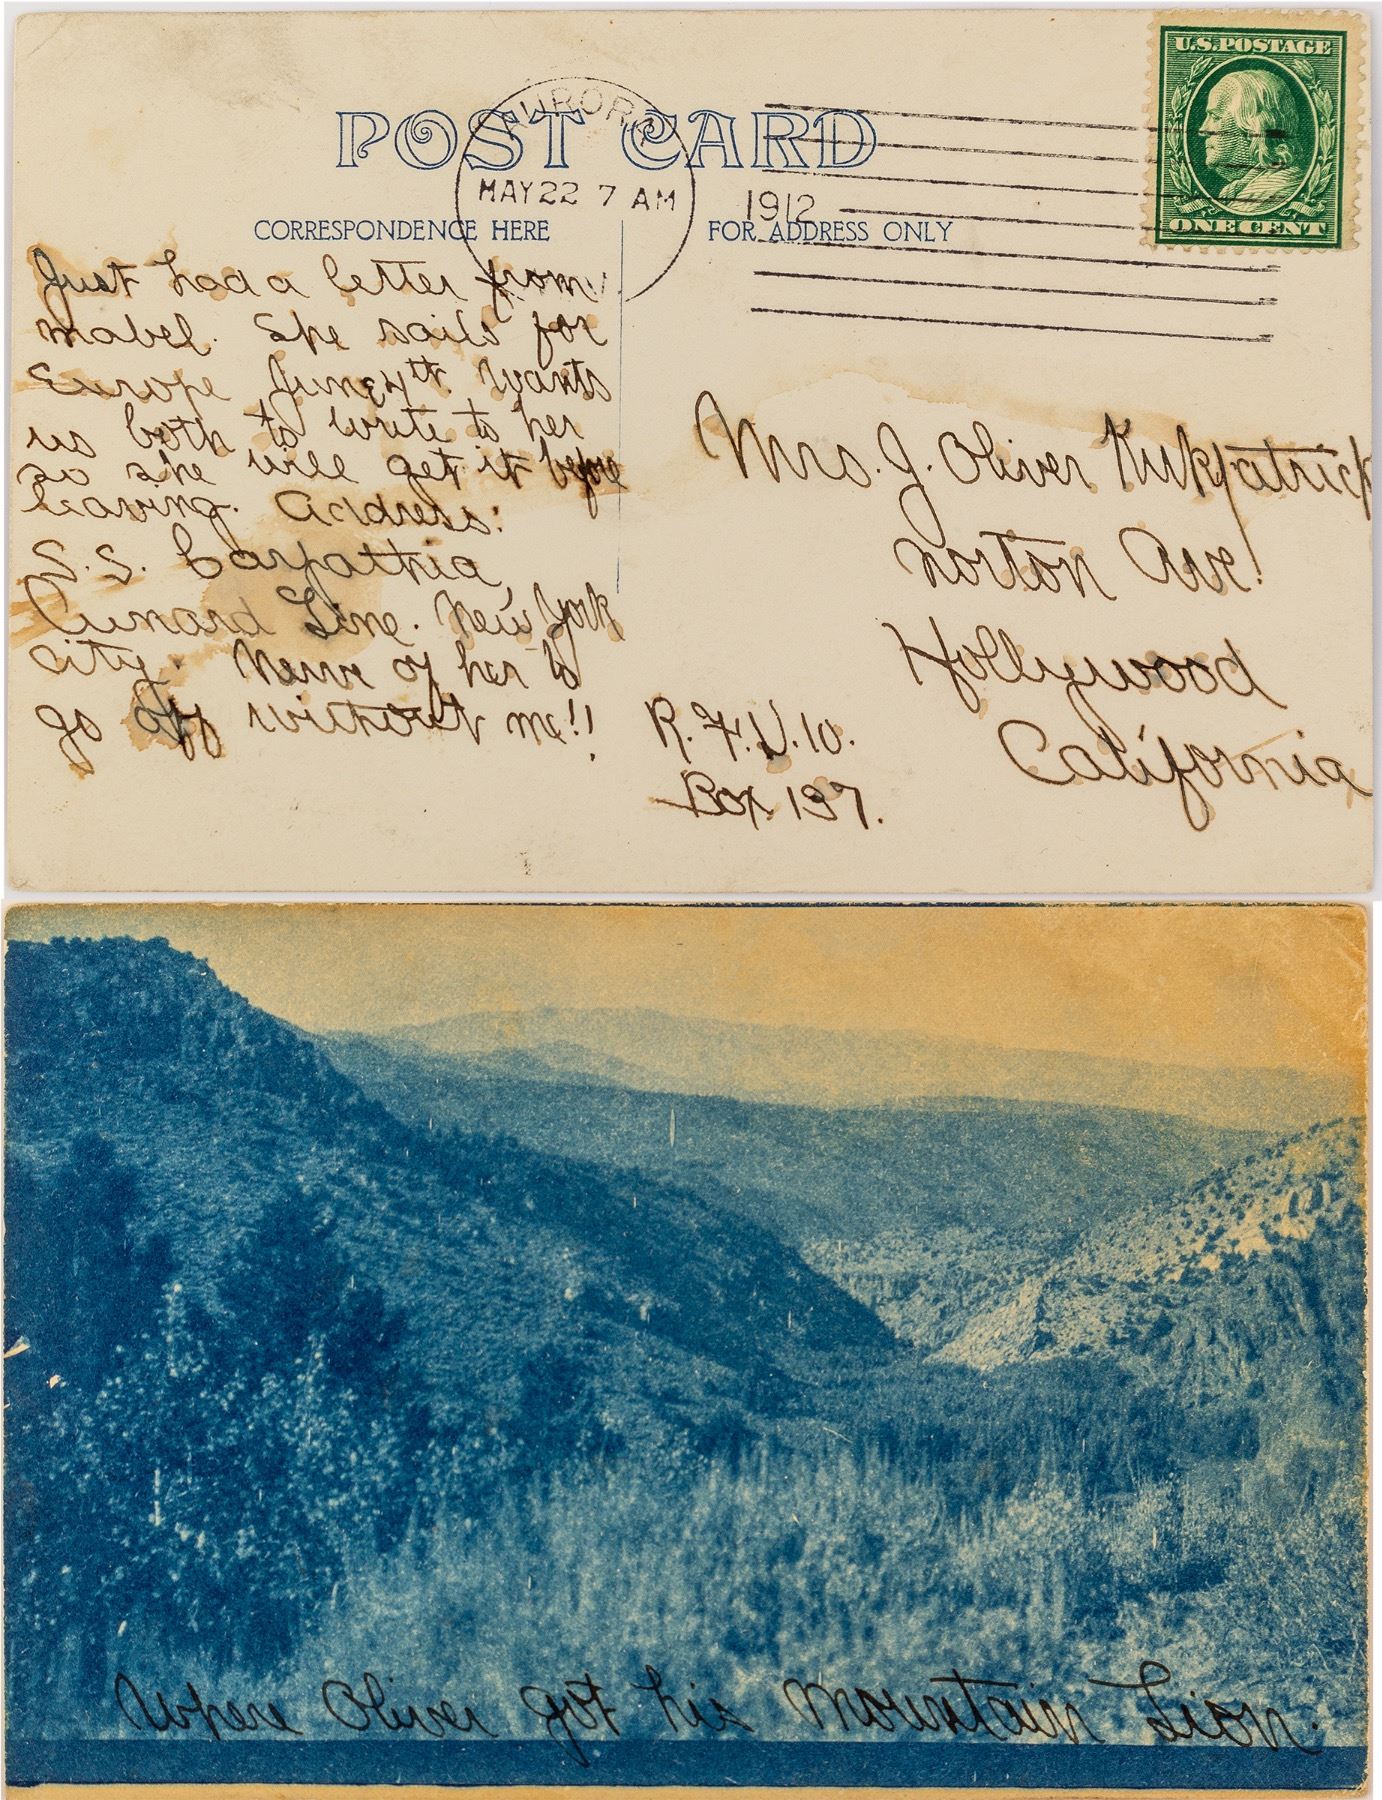 U.S. POSTAGE
ONE CENT
POST CARD
AURORA
MAY 22 7 AM
1912
CORRESPONDENCE HERE
FOR ADDRESS ONLY
Just had a letter from
Mabel. She sails for
Europe June 4th. Wants
us both to write to her
so she will get it before
leaving. Address:
S.S. Carpathia
Cunard Line. New York
City. Nerve of her to
go off without me!!
Mrs. J. Oliver Kirkpatrick
Norton Ave.
Hollywood
California
R.F.D. 10.
Box 137.
Where Oliver got his Mountain Lion.